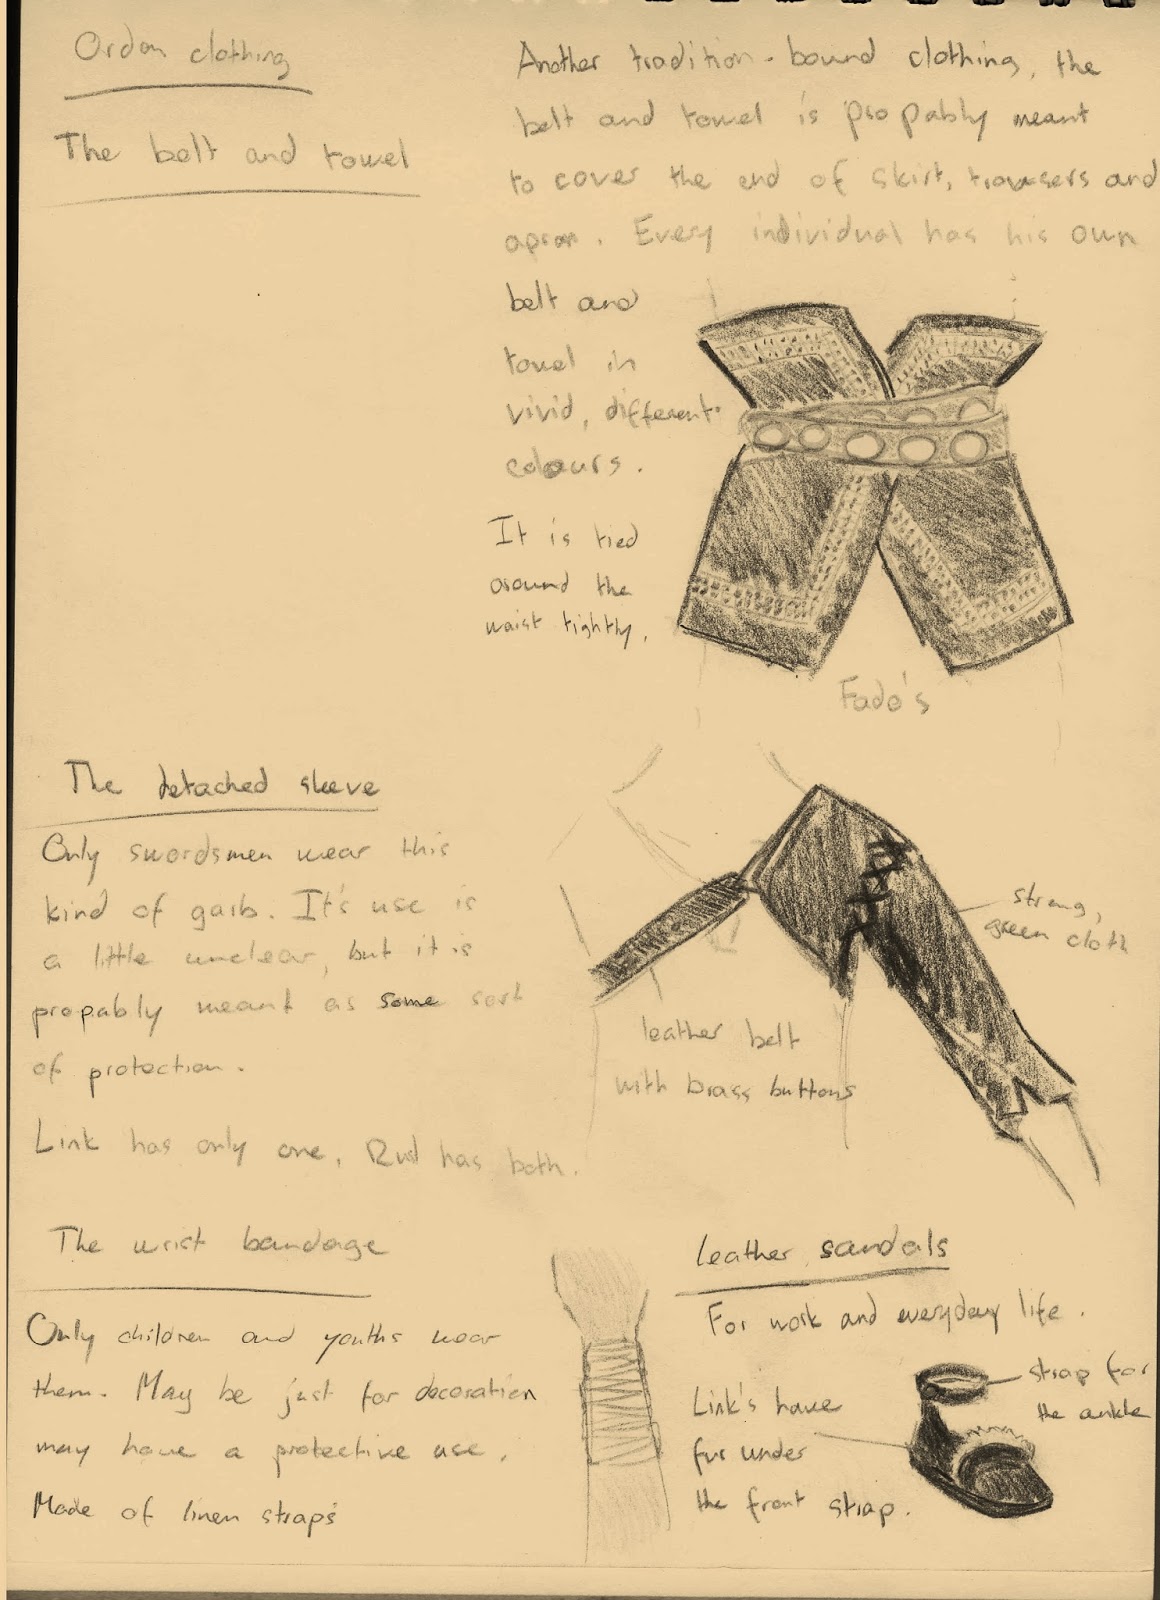 Ordon clothing
The belt and towel
Another tradition-bound clothing, the
belt and towel is propably meant
to cover the end of skirt, trousers and
apron. Every individual has his own
belt and
towel in
vivid, different
colours.
It is tied
around the
waist tightly.
Fado's
The detached sleeve
Only swordsmen wear this
kind of garb. It's use is
a little unclear, but it is
propably meant as some sort
of protection.
Link has only one, Rusl has both.
strong,
green cloth
leather belt
with brass buttons
The wrist bandage
Only children and youths wear
them. May be just for decoration
may have a protective use.
Made of linen straps
leather sandals
For work and everyday life.
Link's have
fur under
the front strap.
strap for
the ankle